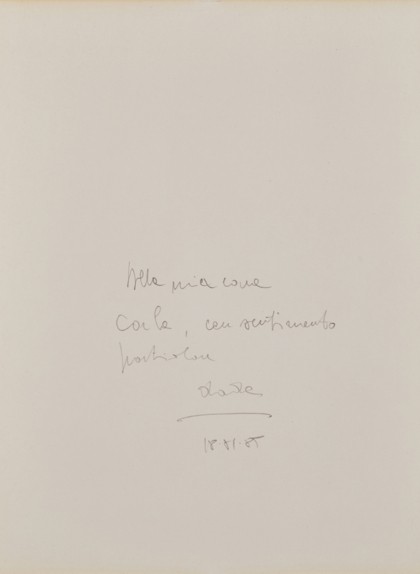 Alla mia cara
Carla, con sentimento
particolare
18.01.85